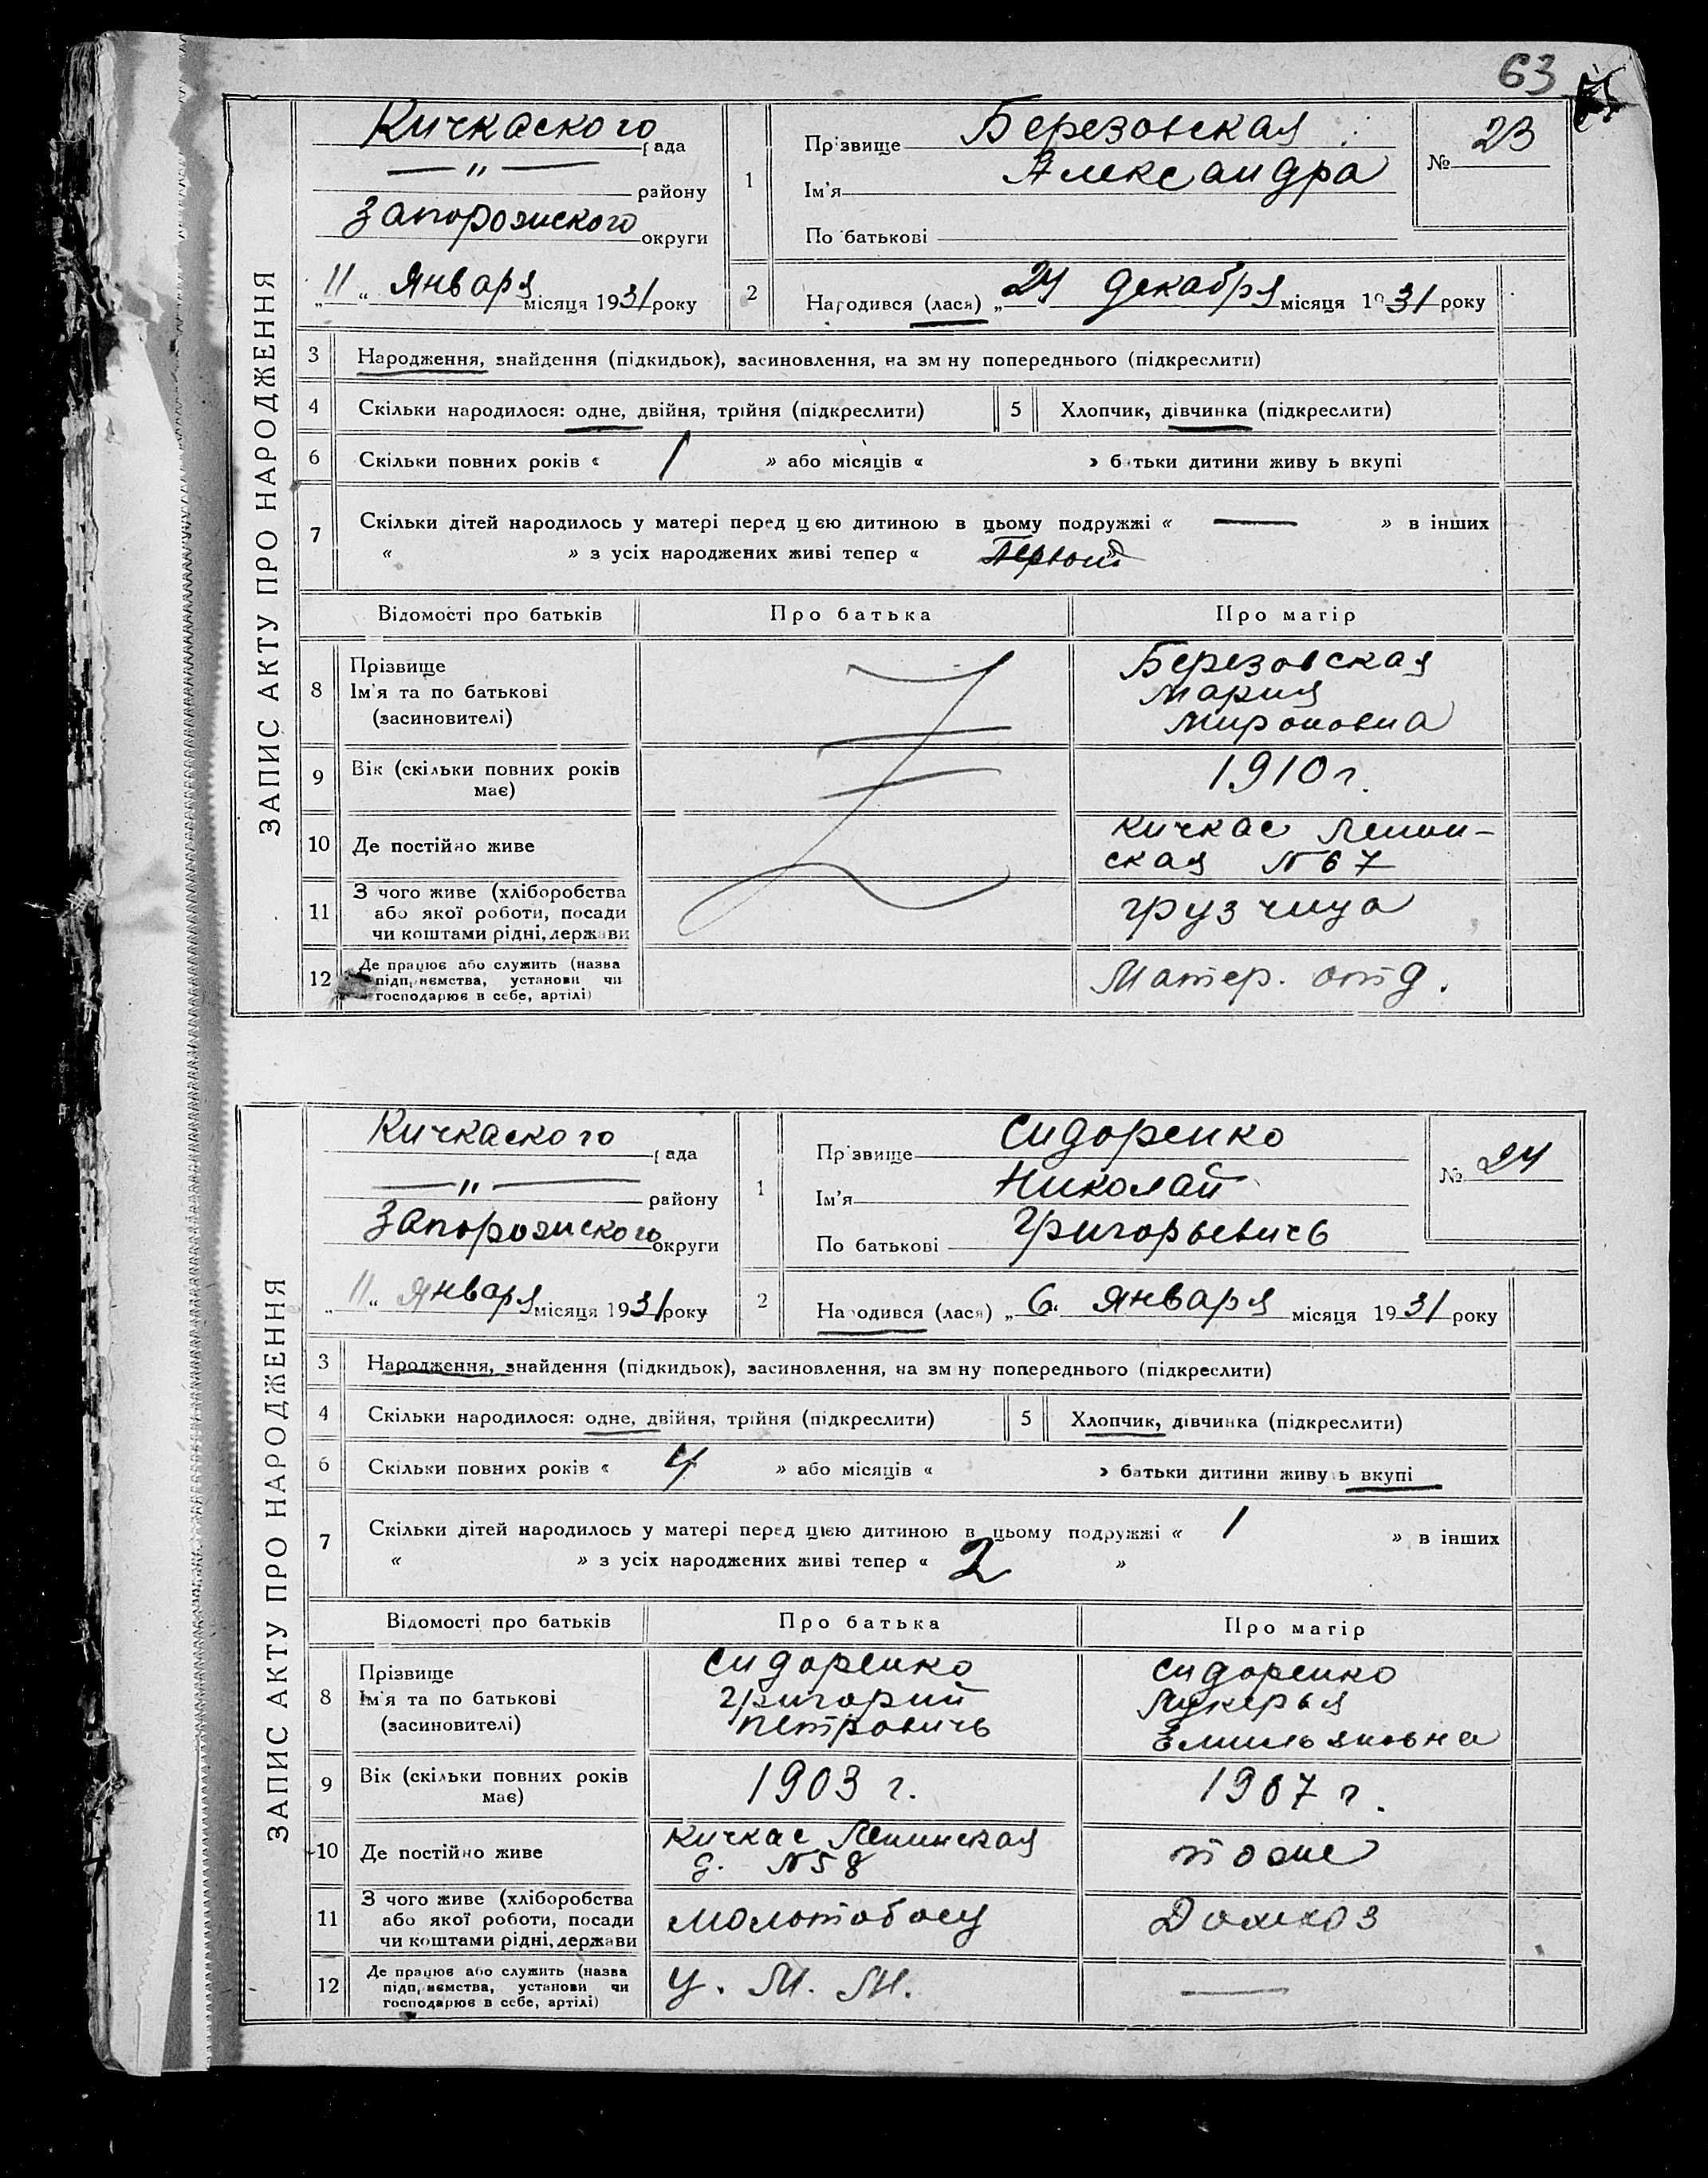 63
ЗАПИС АКТУ ПРО НАРОДЖЕННЯ
Кичкаского рада
— " — району
Запорожского округи
„11“ Января місяця 1931 року
1 Прізвище Березовская
Ім'я Александра
По батькові
№ 23
2 Народився (лася) „24 декабря місяця 1931 року
3 Народження, знайдення (підкидьок), засиновлення, на зміну попереднього (підкреслити)
4 Скільки народилося: одне, двійня, трійня (підкреслити) 5 Хлопчик, дівчинка (підкреслити)
6 Скільки повних років « 1 » або місяців « » батьки дитини живуть вкупі
7 Скільки дітей народилось у матері перед цією дитиною в цьому подружжі « — » в інших
« » з усіх народжених живі тепер «
Відомості про батьків Про батька Про матір
8 Прізвище
Ім'я та по батькові
(засиновителі)
Березовская
Мария
Мироновна
9 Вік (скільки повних років має) 1910 г.
10 Де постійно живе Кичкас Ленин-
ская № 67
11 З чого живе (хліборобства
або якої роботи, посади
чи коштами рідні, держави
грузчица
12 Де працює або служить (назва
підприємства, установи чи
господарює в себе, артілі)
Матер. отд.
ЗАПИС АКТУ ПРО НАРОДЖЕННЯ
Кичкаского рада
— " — району
Запорожского округи
„11“ Января місяця 1931 року
1 Прізвище Сидоренко
Ім'я Николай
По батькові Григорьевичь
№ 24
2 Народився (лася) „6“ января місяця 1931 року
3 Народження, знайдення (підкидьок), засиновлення, на зміну попереднього (підкреслити)
4 Скільки народилося: одне, двійня, трійня (підкреслити) 5 Хлопчик, дівчинка (підкреслити)
6 Скільки повних років « 4 » або місяців « » батьки дитини живуть вкупі
7 Скільки дітей народилось у матері перед цією дитиною в цьому подружжі « 1 » в інших
« » з усіх народжених живі тепер « 2 »
Відомості про батьків Про батька Про матір
8 Прізвище
Ім'я та по батькові
(засиновителі)
Сидоренко
Григорий
Петровичь
Сидоренко
Лукерья
Емильяновна
9 Вік (скільки повних років має) 1903 г. 1907 г.
10 Де постійно живе Кичкас Ленинская
д. № 58
тоже
11 З чого живе (хліборобства
або якої роботи, посади
чи коштами рідні, держави
молотобоец
Домхоз
12 Де працює або служить (назва
підприємства, установи чи
господарює в себе, артілі)
У. М. М.
—